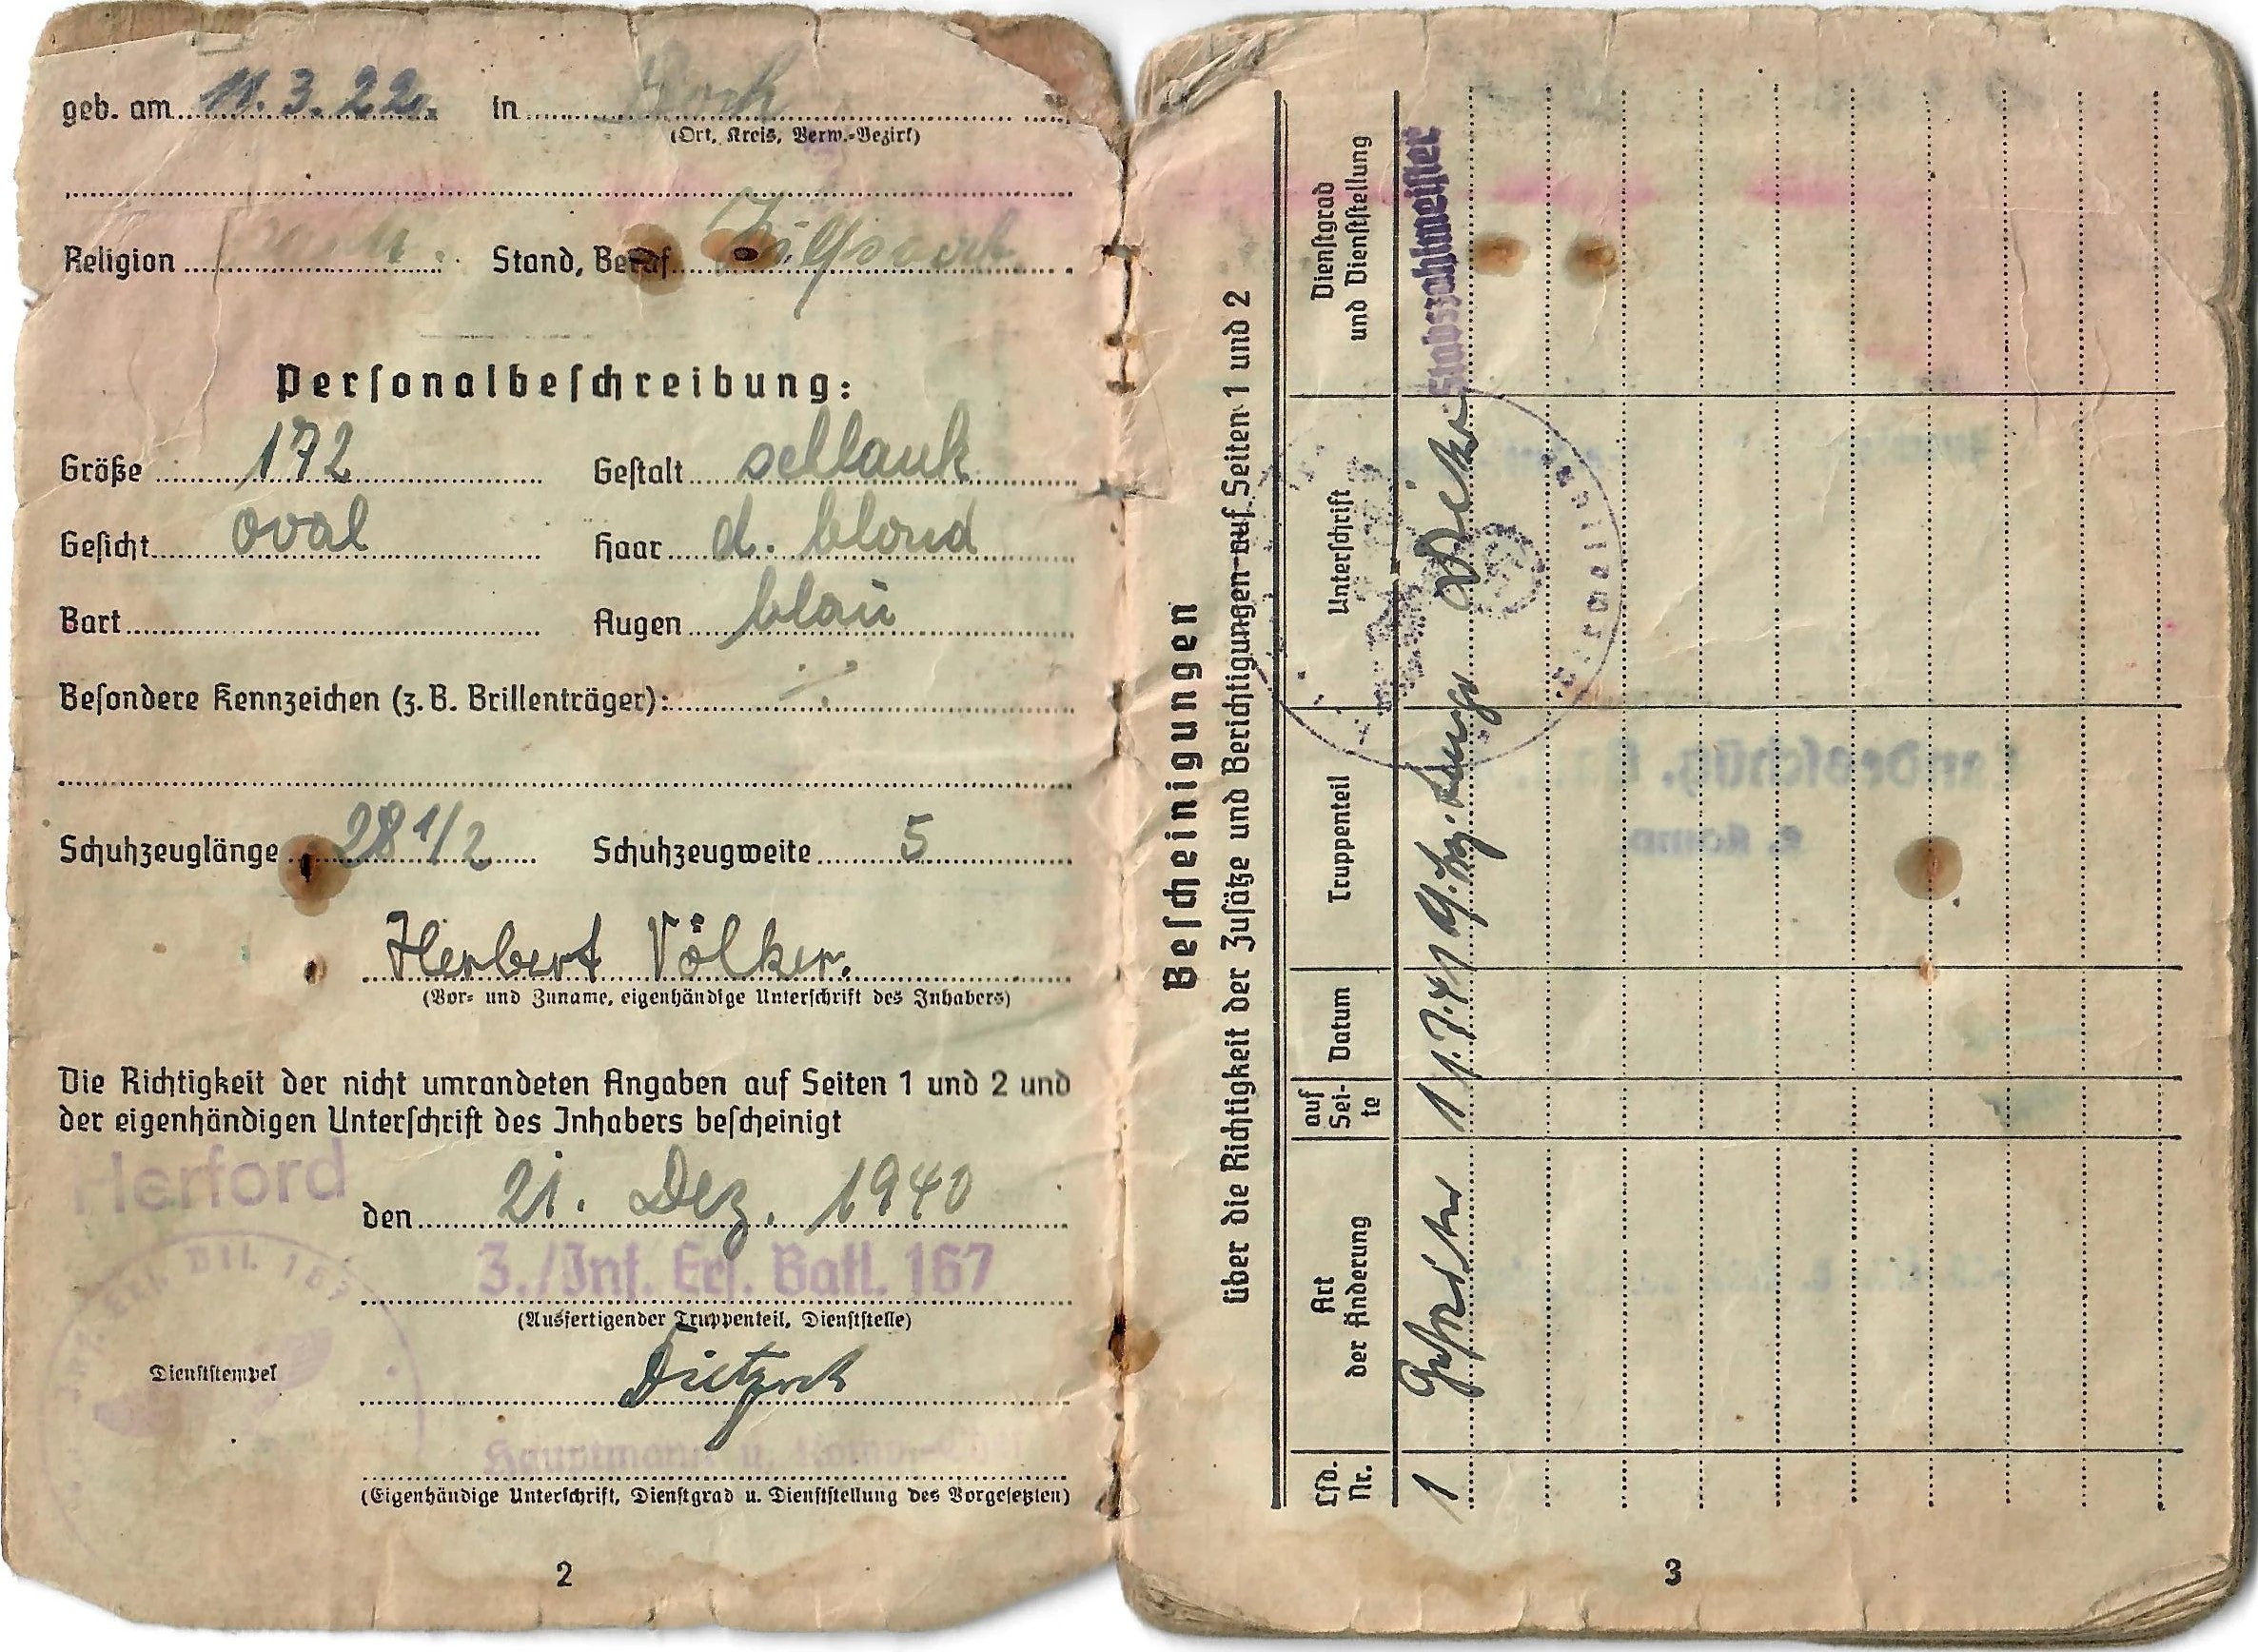 geb. am 11.3.22. in
(Ort, Kreis, Verw.-Bezirk)
Religion Stand, Beruf
Personalbeschreibung:
Größe 172 Gestalt schlank
Gesicht oval Haar d. blond
Bart Augen blau
Besondere Kennzeichen (z. B. Brillenträger):
Schuhzeuglänge 28 1/2 Schuhzeugweite 5
Herbert Völker.
(Vor- und Zuname, eigenhändige Unterschrift des Inhabers)
Die Richtigkeit der nicht umrandeten Angaben auf Seiten 1 und 2 und
der eigenhändigen Unterschrift des Inhabers bescheinigt
Herford
den 21. Dez. 1940
3./Inf. Ers. Batl. 167
(Ausfertigender Truppenteil, Dienststelle)
Dienststempel
Hauptmann u. Komp.-
(Eigenhändige Unterschrift, Dienstgrad u. Dienststellung des Vorgesetzten)
2
Bescheinigungen
über die Richtigkeit der Zusätze und Berichtigungen auf Seiten 1 und 2
Lfd. Nr. Art der Änderung auf Seite Datum Truppenteil Unterschrift Dienstgrad und Dienststellung
1 1 1.7.41 Stabszahlmeister
3